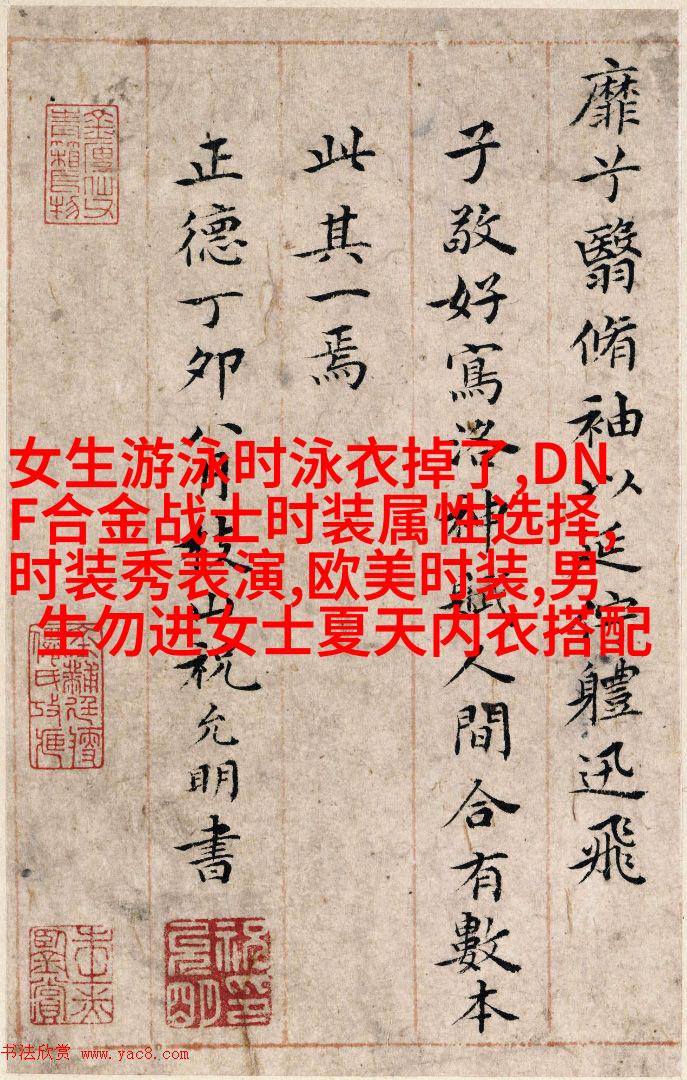 靡兮翳脩袖以延佇體迅飛
子敬好寫洛神賦人間合有數本
此其一焉
正德丁卯八月枝山祝允明書
女生游泳时泳衣掉了,DN
F合金战士时装属性选择,
时装秀表演,欧美时装,男
生勿进女士夏天内衣搭配
书法欣赏 www.yac8.com